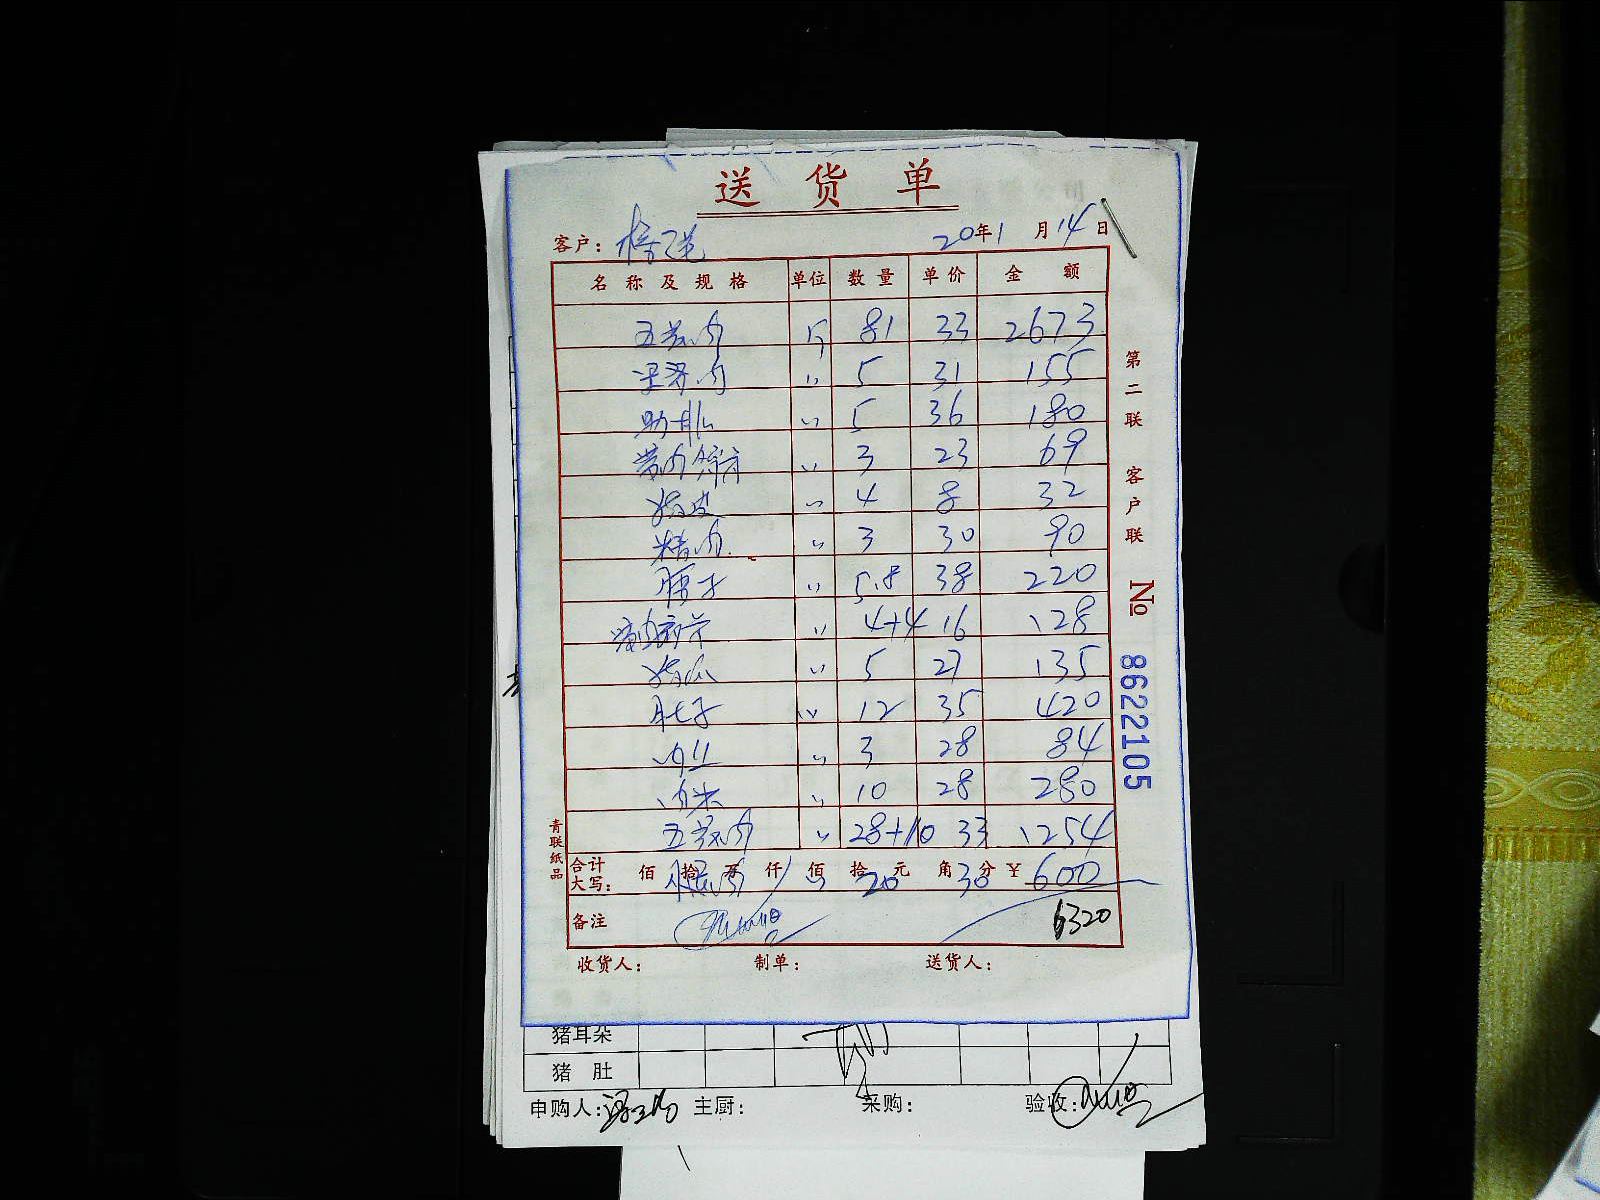 送 货 单
客户: 20年1月14日
名称及规格 单位 数量 单价 金额
五花肉 斤 81 33 2673
肉 〃 5 31 155
助排 〃 5 36 180
带肉筒骨 〃 3 23 69
猪皮 〃 4 8 32
精肉 〃 3 30 90
腰子 〃 5.8 38 220
〃 4+4 16 128
猪爪 〃 5 27 135
肚子 〃 12 35 420
肉丝 〃 3 28 84
肉末 〃 10 28 280
五花肉 〃 28+10 33 1254
合计大写: 佰 拾 万 仟 佰 拾 元 角 分 ¥
肉 〃 20 30 600
备注 6320
收货人: 制单: 送货人:
第二联 客户联
№ 8622105
青联纸品
猪耳朵
猪 肚
申购人: 主厨: 采购: 验收: